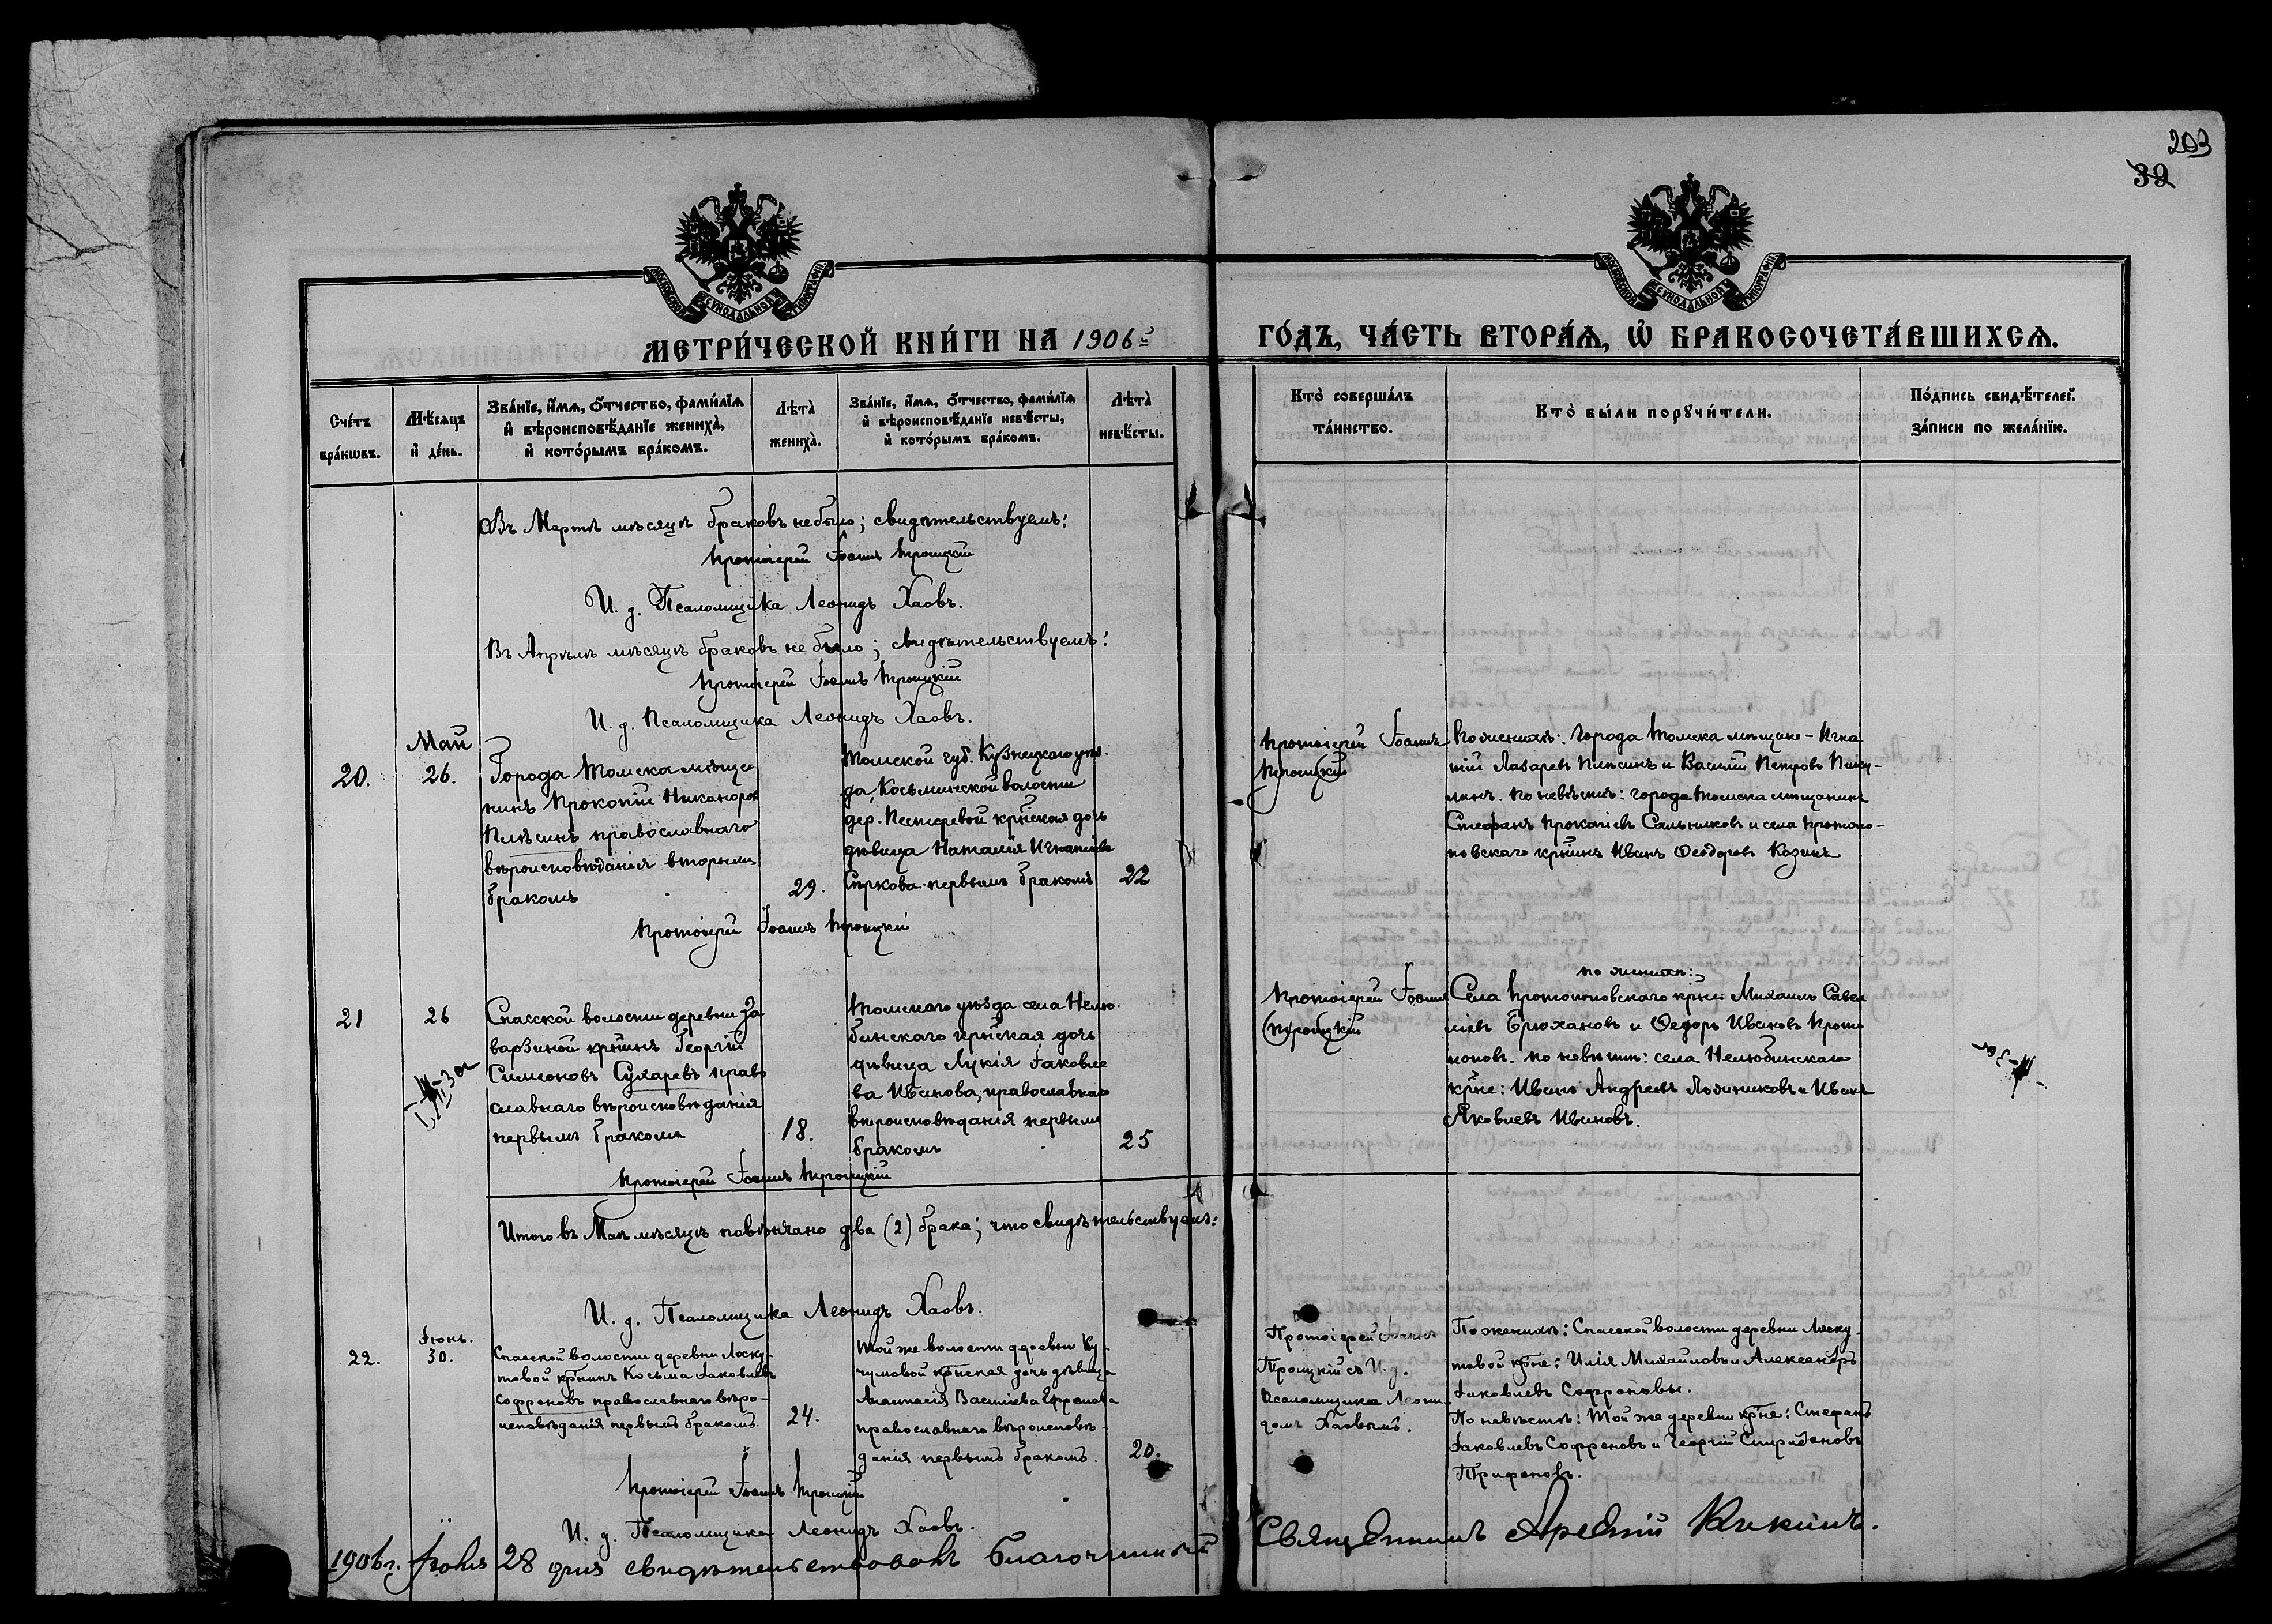 203
39
МОСКОВСКОЙ СѴНОДАЛЬНОЙ ТИПОГРАФІИ
МОСКОВСКОЙ СѴНОДАЛЬНОЙ ТИПОГРАФІИ
МЕТРИ́ЧЕСКОЙ КНИ́ГИ НА 1906 г. ГО́ДЪ, ЧА́СТЬ ВТОРА́Ѧ, Ѽ БРАКОСОЧЕТА́ВШИХСѦ.
Сче́тъ
бра́кѡвъ.
Мѣ́сѧцъ
и҆ де́нь.
Зва́нїе, и҆́мѧ, ѻ҆́тчество, фами́лїѧ
и҆ вѣроисповѣ́данїе жениха̀,
и҆ кото́рымъ бра́комъ.
Лѣта̀
жениха̀.
Зва́нїе, и҆́мѧ, ѻ҆́тчество, фами́лїѧ
и҆ вѣроисповѣ́данїе невѣ́сты,
и҆ кото́рымъ бра́комъ.
Лѣта̀
невѣ́сты.
Кто̀ соверша́лъ
та́инство.
Кто̀ бы́ли порꙋчи́тели.
По́дпись свидѣ́телей
за́писи по жела́нїю.
Въ Мартѣ мѣсяцѣ браковъ не было; свидѣтельствуемъ:
Протоіерей Іоаннъ Троицкій
И. д. Псаломщика Леонидъ Хаовъ.
Въ Апрѣлѣ мѣсяцѣ браковъ не было; свидѣтельствуемъ:
Протоіерей Іоаннъ Троицкій
И. д. Псаломщика Леонидъ Хаовъ.
20.
Май
26.
Города Томска мѣща
нинъ Прокопій Никаноровъ
Плѣсинъ православнаго
вѣроисповѣданія вторымъ
бракомъ
29.
Томской губ. Кузнецкаго уѣз
да, Косьминской волости
дер. Пестеревой крн̃ская дочь
дѣвица Наталія Игнатіева
первымъ бракомъ
22
Протоіерей Іоаннъ
Троицкій
По женихѣ: города Томска мѣщане - Игна
тій Лазаревъ и Василій Петровъ
По невѣстѣ: города Томска мѣщанинъ
Стефанъ Прокопіевъ Сальниковъ и села Протопо-
повскаго крн̃инъ Иванъ Ѳеодоровъ Козинъ
Протоіерей Іоаннъ Троицкій
21
26
Спасской волости деревни За
варзиной крн̃инъ Георгій
Симеоновъ Сухаревъ право
славнаго вѣроисповѣданія
первымъ бракомъ
18.
Томскаго уѣзда села Нелю
бинскаго крн̃ская дочь
дѣвица Лукія Іаковле
ва Иванова, православнаго
вѣроисповѣданія первымъ
бракомъ
25
Протоіерей Іоаннъ
Троицкій
по женихѣ:
Села Протопоповскаго крн̃е: Михаилъ Савел
ліевъ Брюхановъ и Ѳедоръ Ивановъ Прото
поповъ. по невѣстѣ: села Нелюбинскаго
крн̃е: Иванъ Андреевъ и Иванъ
Яковлевъ Ивановъ.
Протоіерей Іоаннъ Троицкій
Итого въ Маѣ мѣсяцѣ повѣнчано два (2) брака; что свидѣтельствуемъ:
И. д. Псаломщика Леонидъ Хаовъ.
22.
Іюнь.
30.
Спасской волости деревни Лоску-
товой крн̃инъ Косьма Іаковлевъ
Софроновъ православнаго вѣро-
исповѣданія первымъ бракомъ.
24.
Той же волости деревни Ку-
чумовой крн̃ская дочь дѣвица
Анастасія Василіева Ефремова
православнаго вѣроисповѣ-
данія первымъ бракомъ.
20.
Протоіерей Іоаннъ
Троицкій съ И. д.
Псаломщика Леони-
домъ Хаовымъ.
По женихѣ: Спасской волости деревни Лоску-
товой крн̃е: Илія Михайловъ и Александръ
Іаковлевъ Софроновы.
По невѣстѣ: Той же деревни крн̃е: Стефанъ
Іаковлевъ Софроновъ и Георгій Спиридоновъ
Трифоновъ.
Протоіерей Іоаннъ Троицкій
И. д. Псаломщика Леонидъ Хаовъ.
1906 г. Іюля 28 дня свидѣтельствовалъ Благочинный Священникъ Арсеній Кикинъ.